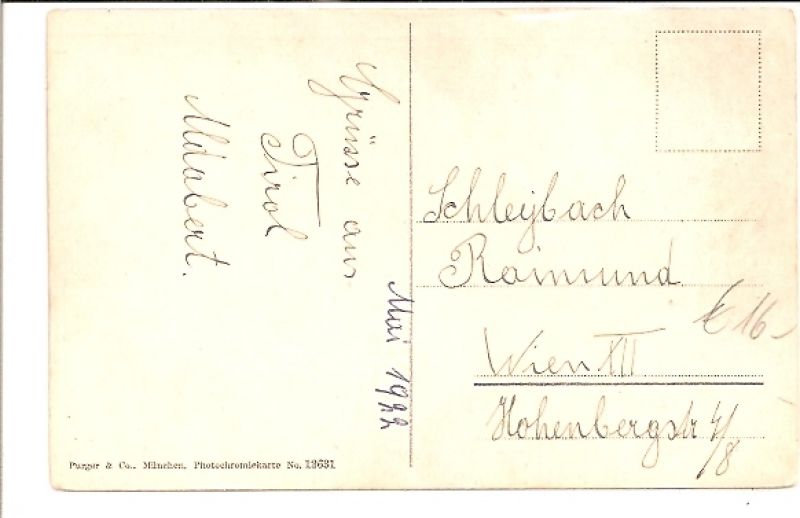 Grüsse aus
Tirol
Mai 1922
Schleybach
Raimund
€ 16-
Wien XII
Hohenbergstr 4/8
Purger & Co., München, Photochromiekarte No. 13631